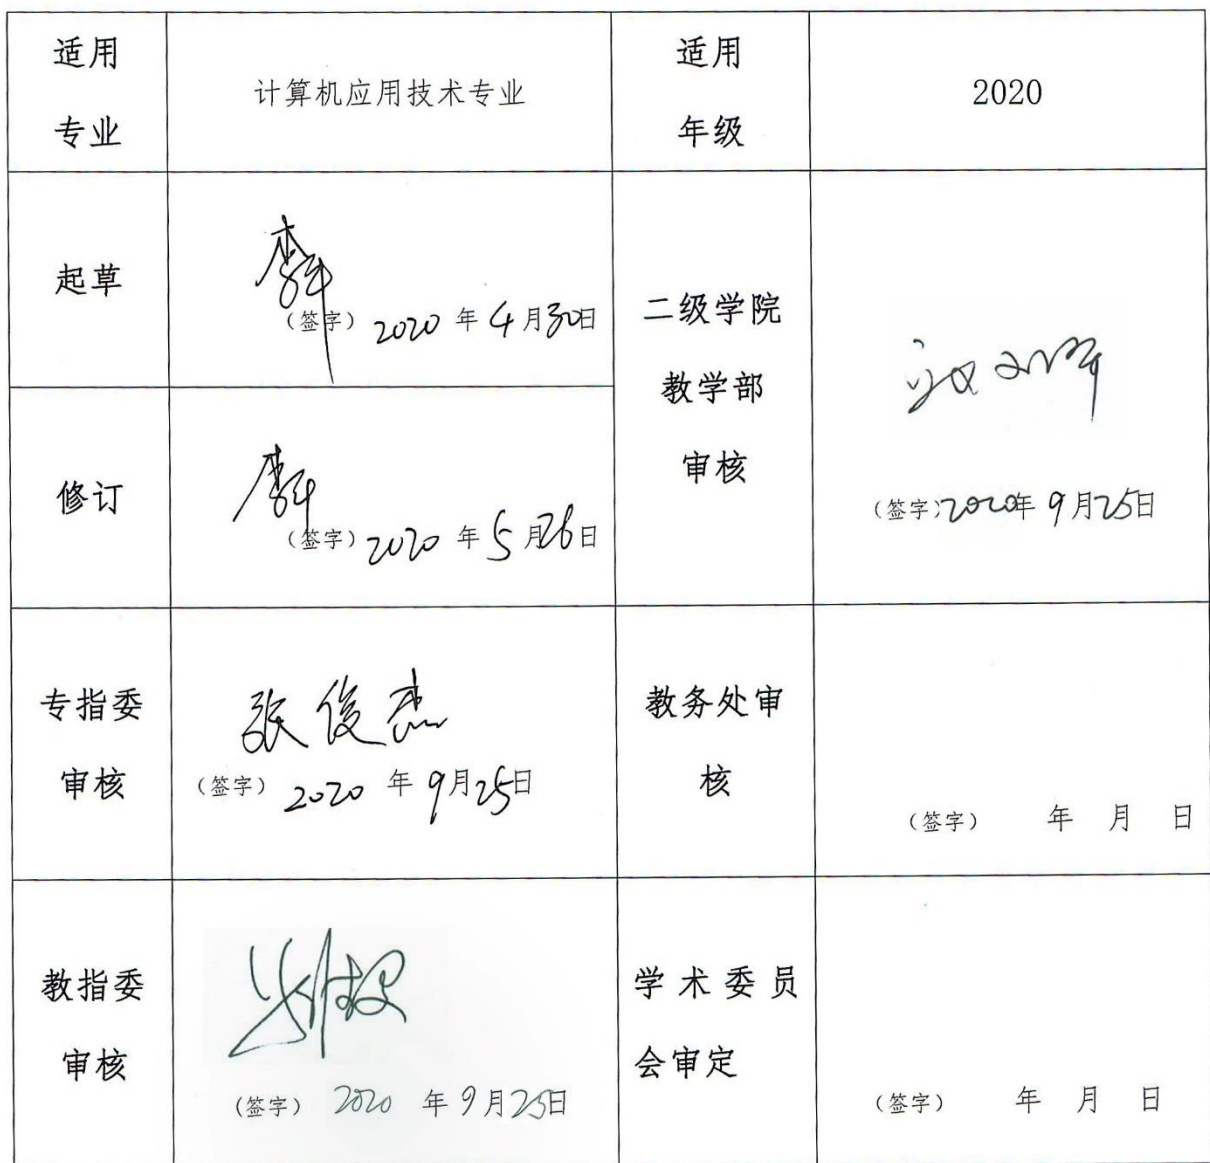 适用
专业
计算机应用技术专业
适用
年级
2020
起草
(签字) 2020 年 4 月 30 日
二级学院
教学部
审核
(签字) 2020 年 9 月 25 日
修订
(签字) 2020 年 5 月 26 日
专指委
审核
张俊杰
(签字) 2020 年 9 月 25 日
教务处审
核
(签字) 年 月 日
教指委
审核
(签字) 2020 年 9 月 25 日
学术委员
会审定
(签字) 年 月 日